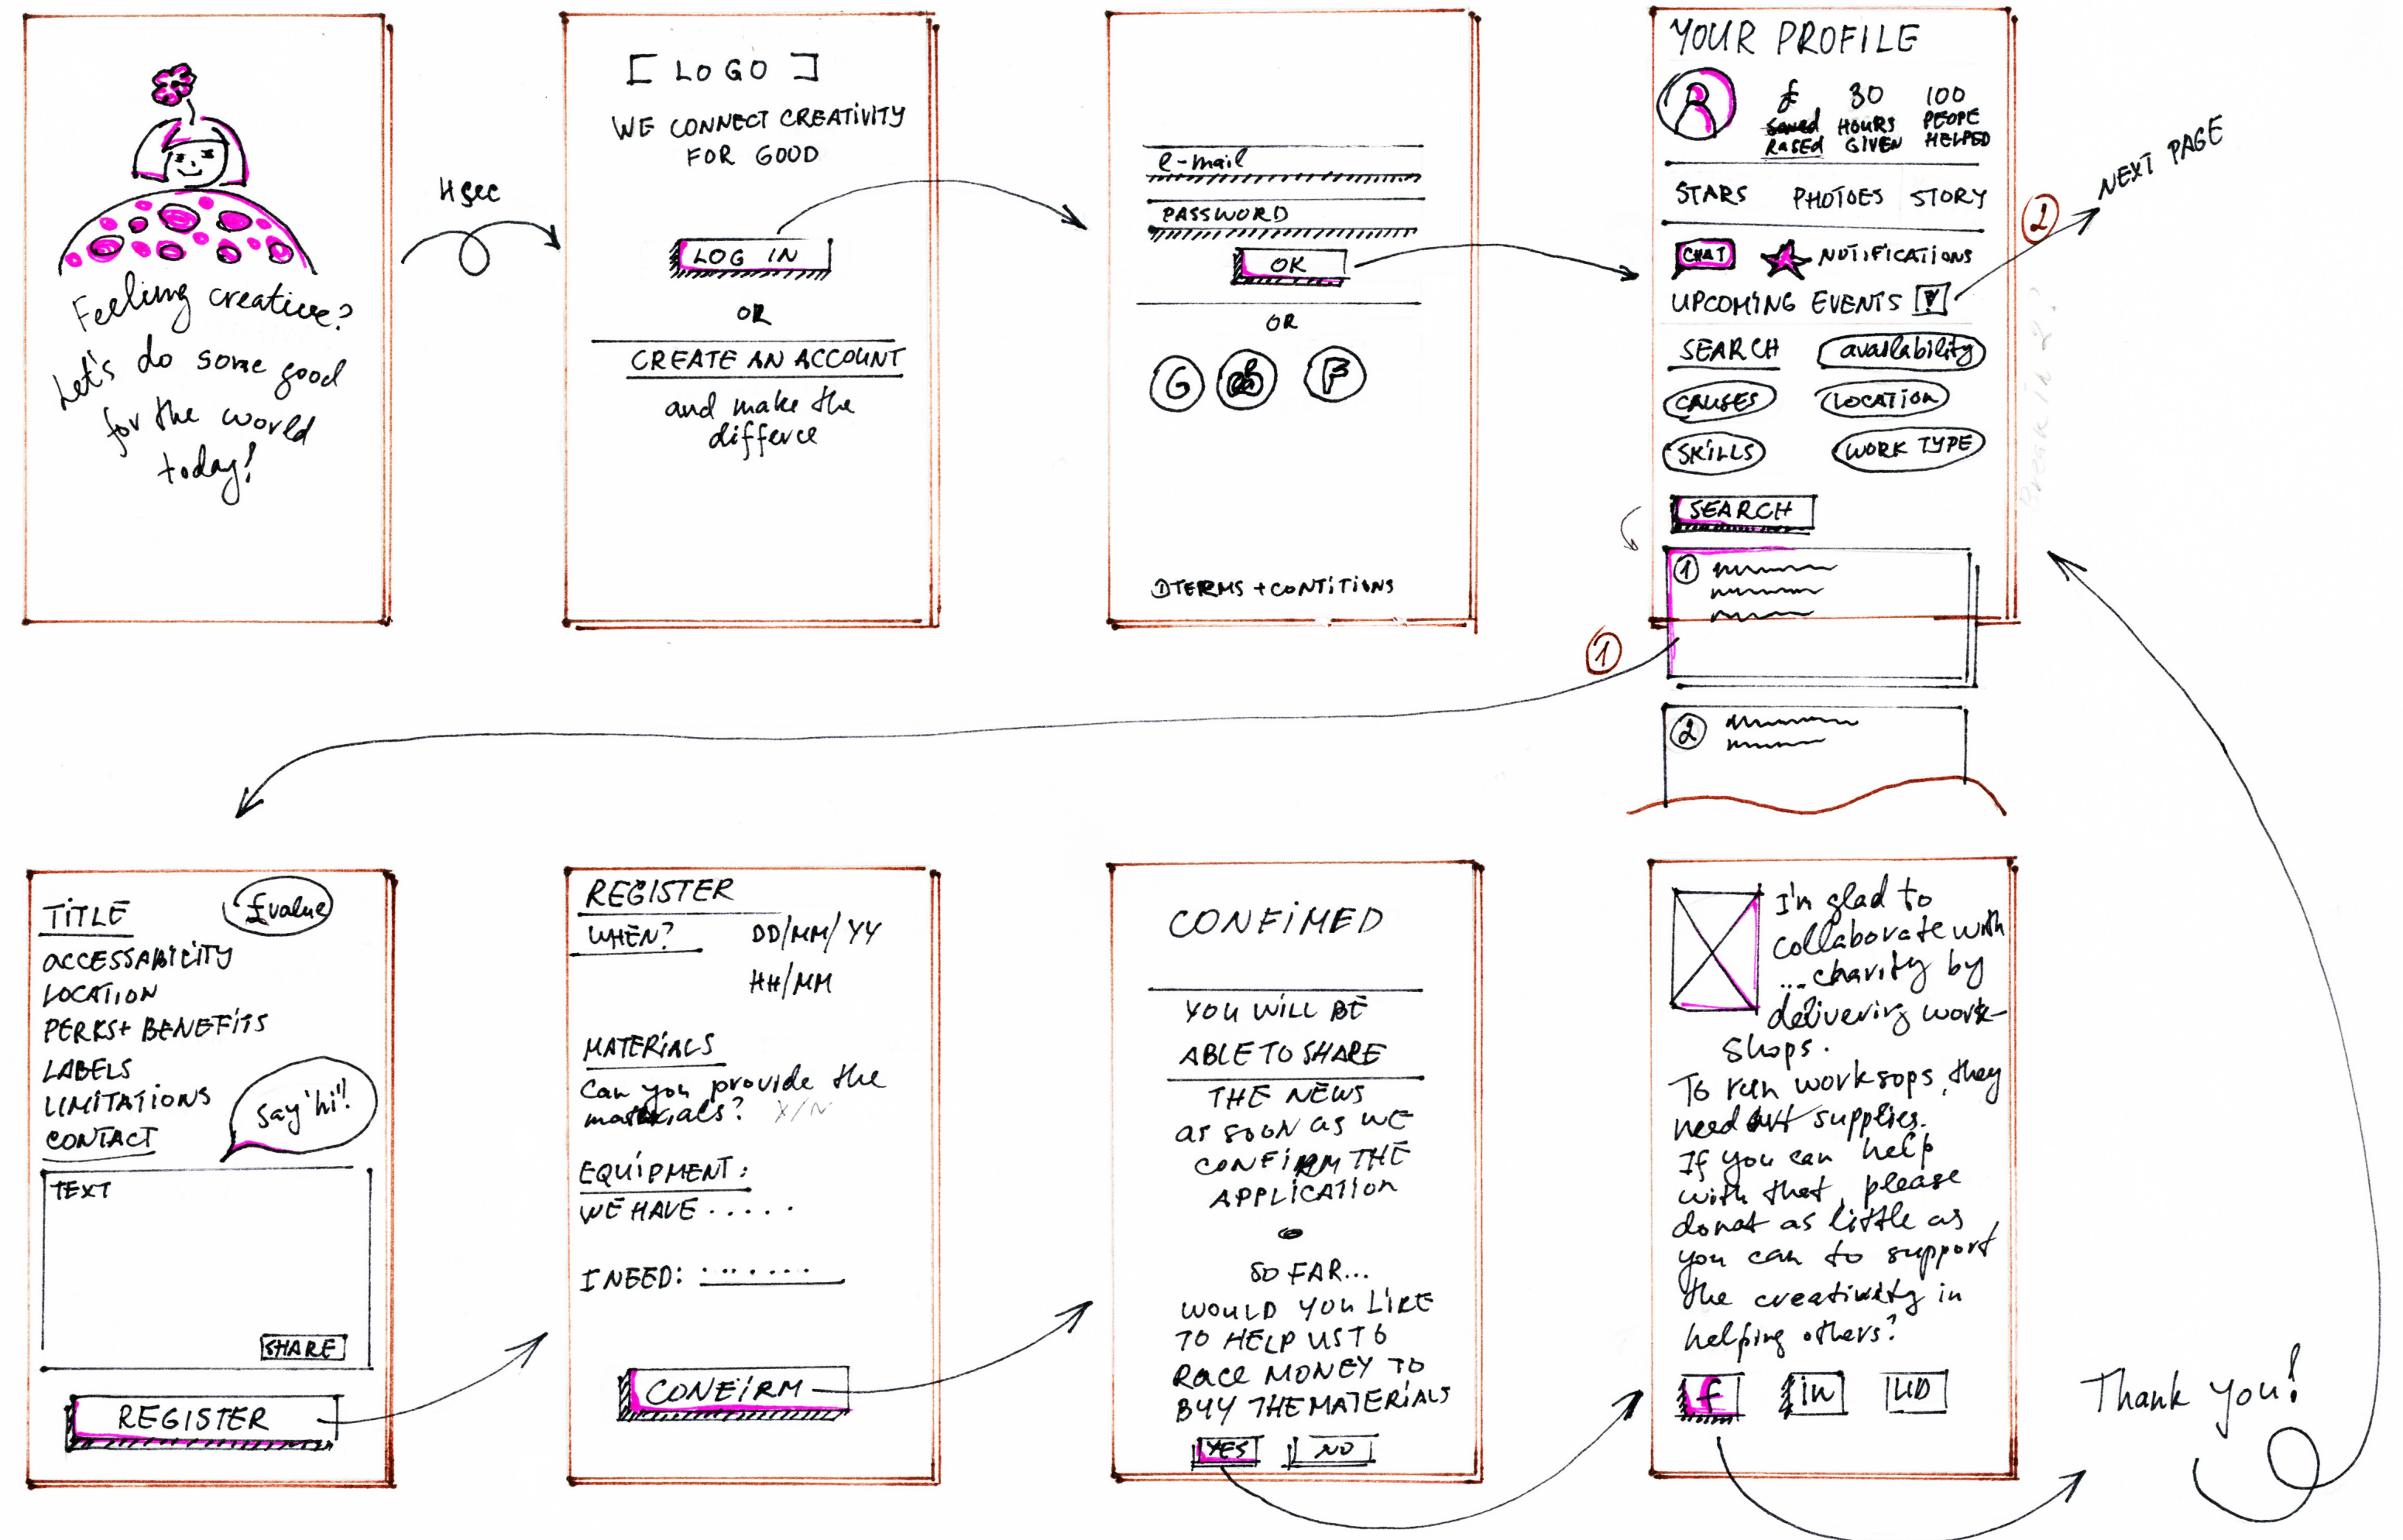 Feeling creative?
Let's do some good
for the world
today!
4 sec
[ LOGO ]
WE CONNECT CREATIVITY
FOR GOOD
LOG IN
OR
CREATE AN ACCOUNT
and make the
differce
e-mail
PASSWORD
OK
OR
G
TERMS + CONTITIONS
YOUR PROFILE
£ 30 100
saved HOURS PEOPE
RASED GIVEN HELPED
STARS PHOTOES STORY
CHAT NOTIFICATIONS
UPCOMING EVENTS
2
NEXT PAGE
SEARCH availability
CAUSES LOCATION
SKILLS WORK TYPE
SEARCH
Break in 2?
1
1
2
TITLE £value
ACCESSABILITY
LOCATION
PERKS + BENEFITS
LABELS
LIMITATIONS
CONTACT
say 'hi'!
TEXT
SHARE
REGISTER
REGISTER
WHEN? DD/MM/YY
HH/MM
MATERIALS
Can you provide the
materials? Y/N
EQUIPMENT:
WE HAVE .....
I NEED: .......
CONFIRM
CONFIMED
YOU WILL BE
ABLE TO SHARE
THE NEWS
AS SOON AS WE
CONFIRM THE
APPLICATION
SO FAR...
WOULD YOU LIKE
TO HELP US TO
RACE MONEY TO
BUY THE MATERIALS
YES NO
I'm glad to
collaborate with
... charity by
delivering work-
shops.
To run worksops, they
need art supplies.
If you can help
with that, please
donat as little as
you can to support
the creativity in
helping others?
f in
Thank you!